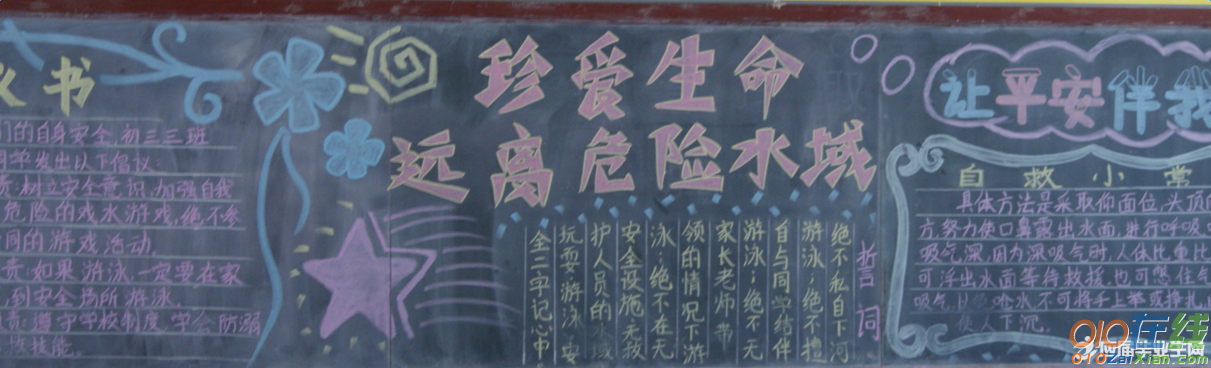 书
们的自身安全,初三三班
同学发出以下倡议:
责:树立安全意识,加强自我
危险的戏水游戏,绝不参
同的游戏活动.
责:如果游泳,一定要在家
,到安全场所游泳.
责:遵守学校制度,学会防溺
技能.
珍爱生命
远离危险水域
誓词
绝不私自下河
游泳;绝不擅
自与同学结伴
游泳;绝不无
家长老师带
领的情况下游
泳;绝不在无
安全设施、无救
护人员的水域
玩耍游泳,安
全二字记心中
让平安伴我
自救小常
具体方法是采取仰面位,头顶
方,努力使口鼻露出水面,进行呼吸
吸气深,因为深吸气时,人体比重比
可浮出水面等待救援,也可憋住气
吸气以免呛水,不可将手上举或挣扎,
使人下沉.
010在线
010zaixian.com
应届毕业生网